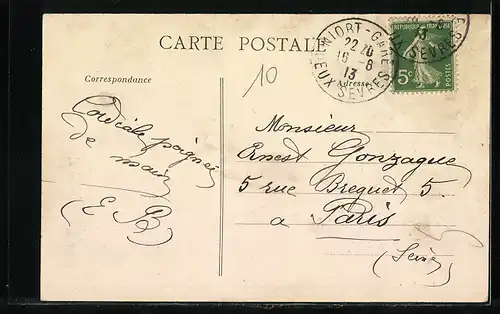 CARTE POSTALE
Correspondance
Adresse
10
NIORT-GARE
22 10
16-8
13
DEUX SEVRES
5c
POSTES
Cordiale poignée
de main
(E B)
Monsieur
Ernest Gonzague
5 rue Breguet 5.
a Paris
(Seine)